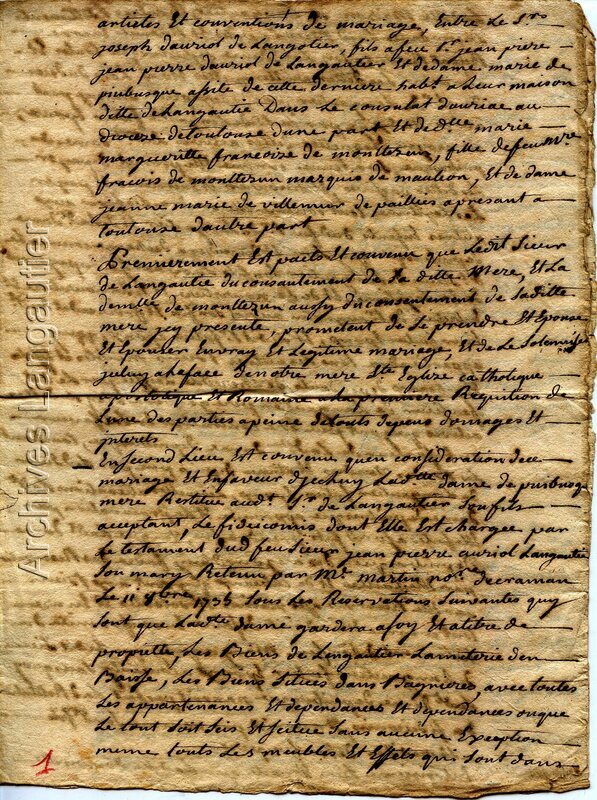 articles Et conventions de mariage, Entre Le Sr.
joseph dauriol de Langotier, fils a feu Sr. jean piere
jean pierre dauriol de Langautier Et de dame marie de
puibusque assite de cette derniere habt a Leur maison
ditte de Langautié Dans Le consulat dauriac au
dioceze de toulouse dune part Et de dlle marie
margueritte francoize de monttezun, fille de feu Mre.
fracois de monttezun marquis de mauleon, Et de dame
jeanne marie de villemur de pailles apresant a
toulouse dautre part
Premierement Est pacté Et convenu que Ledit Sieur
de Langautie du consantement de Sa ditte Mere, Et La
demlle de monttezun aussy du consentement de Saditte
mere jcy presente, promettent de Se prendre Et Epouse
Et Epouser En vray Et Legitime mariage, Et de Le Solemniser
jceluy a la face de notre mere Ste Eglize catholique
apostolique Et Romaine a la premiere Requition de
Lune des parties a peine de touts depens domages Et
jnterets
En second Lieu Est convenu quen consideration de ce
mariage Et En faveur djceluy Ladtte dame de puibusq
mere Restitue audt. Sr. de Langautier Son fils
aceptant, Le fideicomis dont Elle Est chargée par
Le testament dud feu Sieur jean pierre auriol Langautie
Son mary Retenu par Me. martin nore. de caraman
Le 11 xbre 1735 Sous Les Reservations Suivantes quy
Sont que Ladtte dame gardera a foy Et a titre de
propietté, Les Biens de Langautier La meterie den
Baisse, Les Biens Situes dans Bagnieres, avec toutes
Les appartenances Et dependances Et dependances ou que
Le tout Soit Seis Et Scitue Sans aucune Exception
meme touts Les meubles Et Effets qui Sont dans
1
Archives Langautier